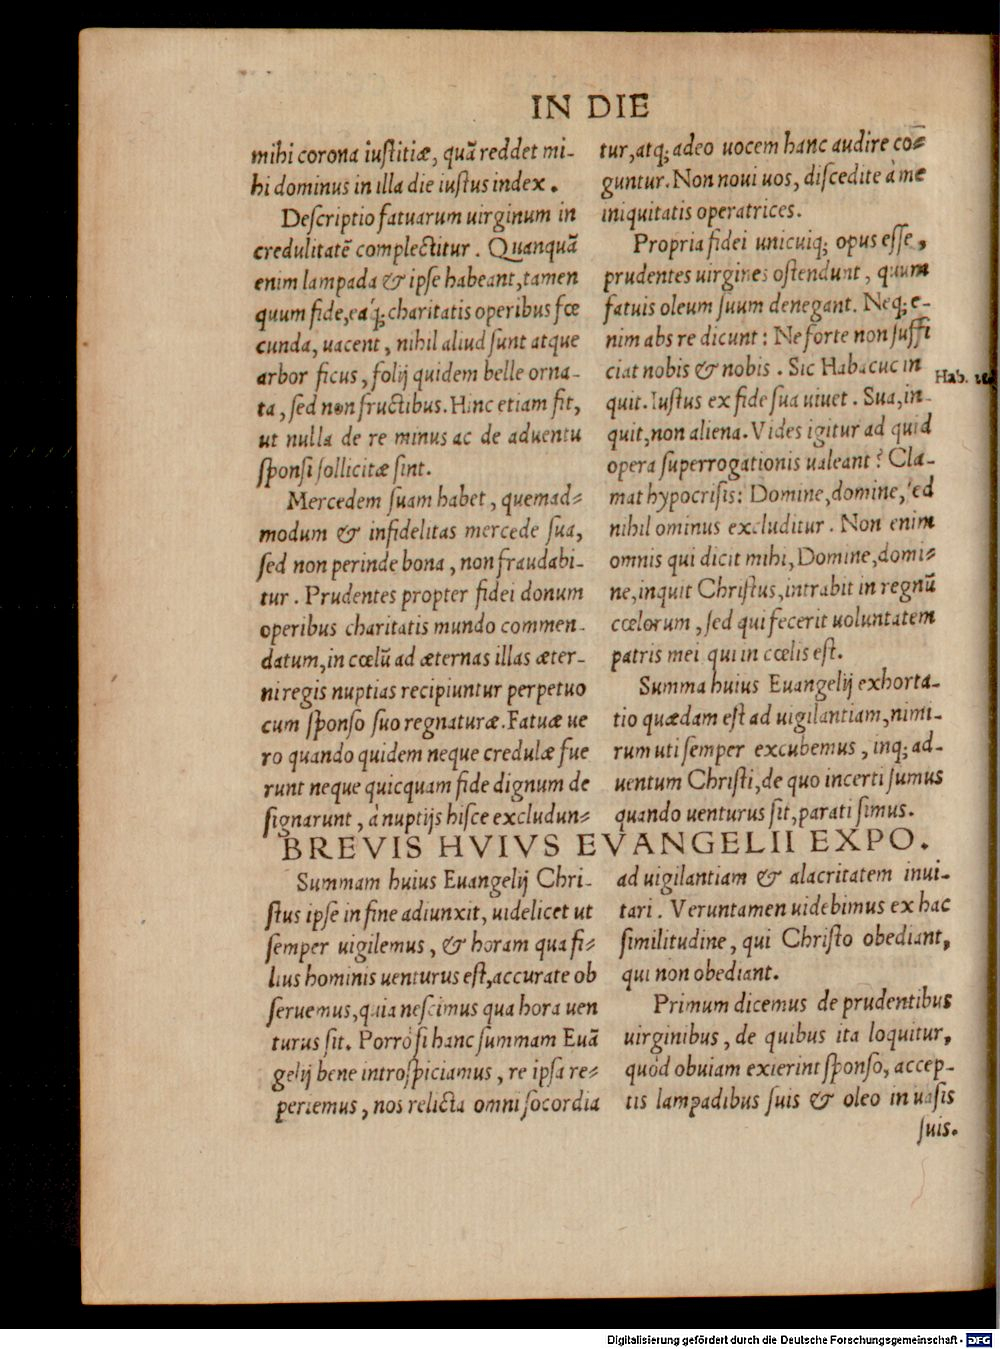 IN DIE
mihi corona iustitiæ, quā reddet mi-
hi dominus in illa die iustus index.
Descriptio fatuarum uirginum in
credulitatē complectitur. Quanquā
enim lampada & ipse habeant, tamen
quum fide, eaq́; charitatis operibus fœ
cunda, uacent, nihil aliud sunt atque
arbor ficus, folij quidem belle orna-
ta, sed non fructibus. Hinc etiam fit,
ut nulla de re minus ac de aduentu
sponsi sollicitæ sint.
Mercedem suam habet, quemad-
modum & infidelitas mercede sua,
sed non perinde bona, non fraudabi-
tur. Prudentes propter fidei donum
operibus charitatis mundo commen-
datum, in cœlū ad æternas illas æter-
ni regis nuptias recipiuntur perpetuo
cum sponso suo regnaturæ. Fatuæ ue
ro quando quidem neque credulæ fue
runt neque quicquam fide dignum de
signarunt, à nuptijs hisce excludun-
tur, atq; adeo uocem hanc audire co-
guntur. Non noui uos, discedite à me
iniquitatis operatrices.
Propria fidei unicuiq; opus esse,
prudentes uirgines ostendunt, quum
fatuis oleum suum denegant. Neq; e-
nim abs re dicunt: Ne forte non suffi
ciat nobis & nobis. Sic Habacuc in
Hab.
quit. Iustus ex fide sua uiuet. Sua, in-
quit, non aliena. Vides igitur ad quid
opera superrogationis ualeant? Cla-
mat hypocrisis: Domine, domine, sed
nihil ominus excluditur. Non enim
omnis qui dicit mihi, Domine, domi-
ne, inquit Christus, intrabit in regnū
cœlorum, sed qui fecerit uoluntatem
patris mei qui in cœlis est.
Summa huius Euangelij exhorta-
tio quædam est ad uigilantiam, nimi-
rum uti semper excubemus, inq; ad-
uentum Christi, de quo incerti sumus
quando uenturus sit, parati simus.
BREVIS HVIVS EVANGELII EXPO.
Summam huius Euangelij Chri-
stus ipse in fine adiunxit, uidelicet ut
semper uigilemus, & horam qua fi-
lius hominis uenturus est, accurate ob
seruemus, quia nescimus qua hora uen
turus sit. Porrò si hanc summam Euā
gelij bene introspiciamus, re ipsa re-
periemus, nos relicta omni socordia
ad uigilantiam & alacritatem inui-
tari. Veruntamen uidebimus ex hac
similitudine, qui Christo obediant,
qui non obediant.
Primum dicemus de prudentibus
uirginibus, de quibus ita loquitur,
quòd obuiam exierint sponso, accep-
tis lampadibus suis & oleo in uasis
suis.
Digitalisierung gefördert durch die Deutsche Forschungsgemeinschaft - DFG